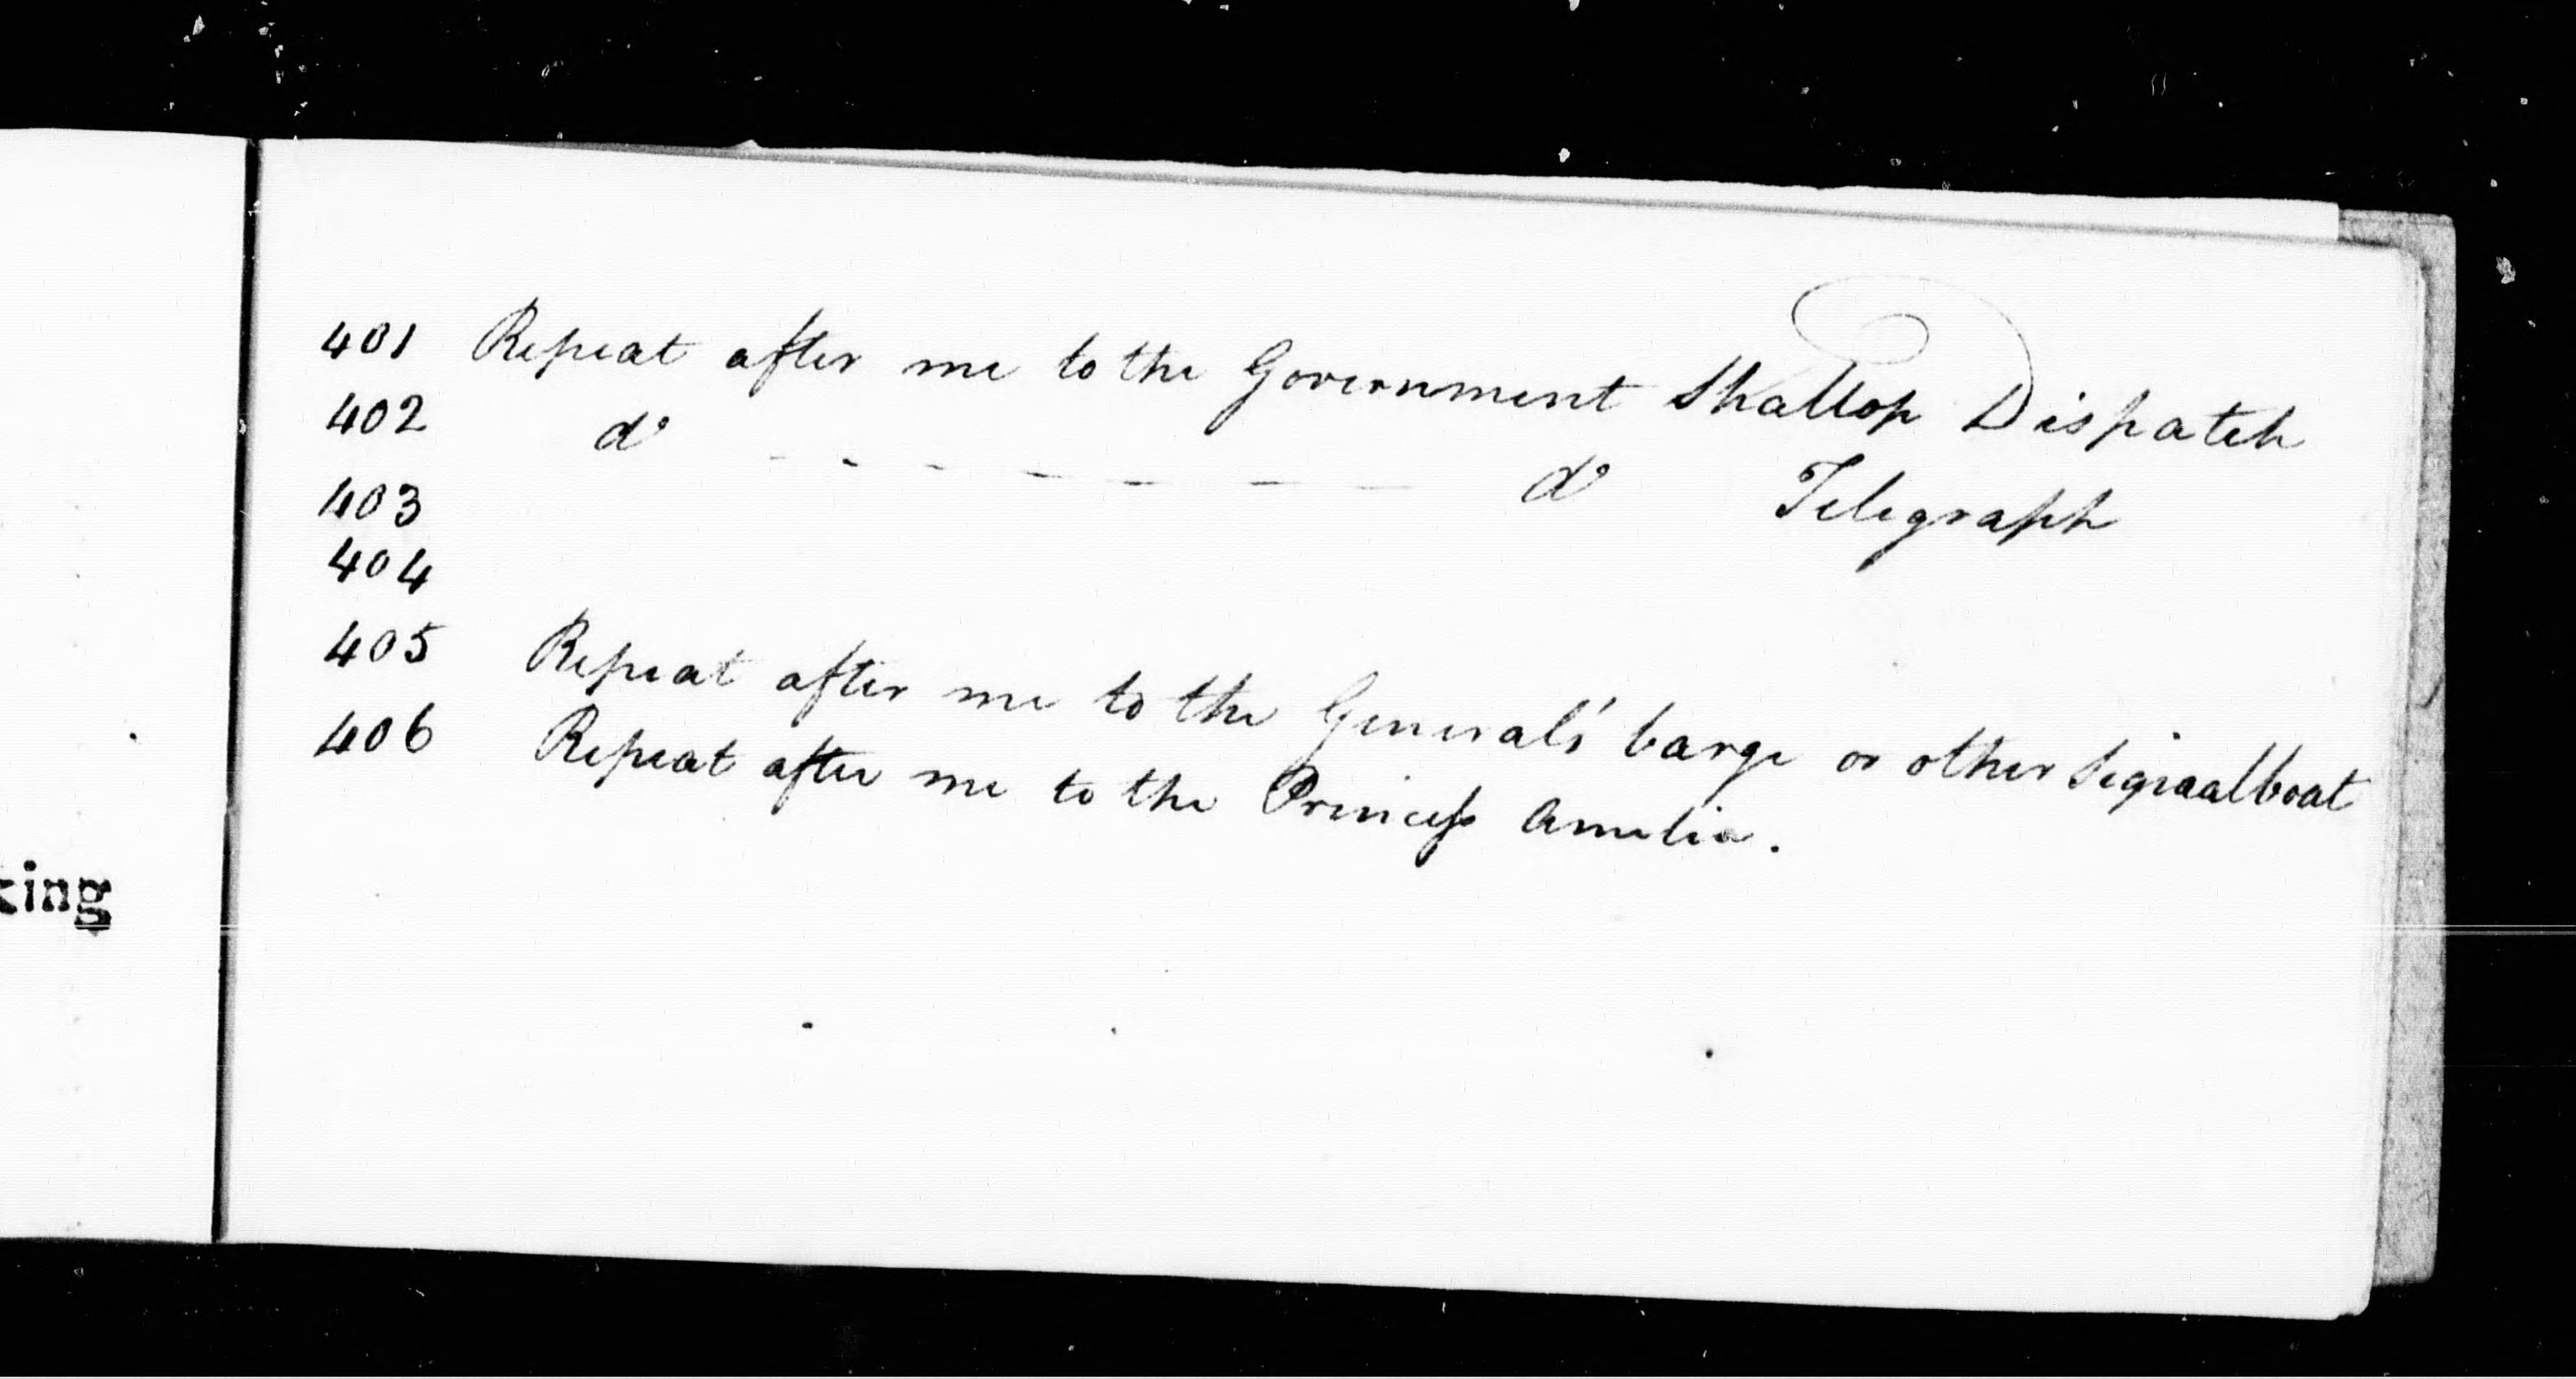 401 Repeat after me to the Government Shallop Dispatch
402 do - - - - - - - do Telegraph
403
404
405 Repeat after me to the Generals' barge or other Signaalboat
406 Repeat after me to the Princess Amelia.
king